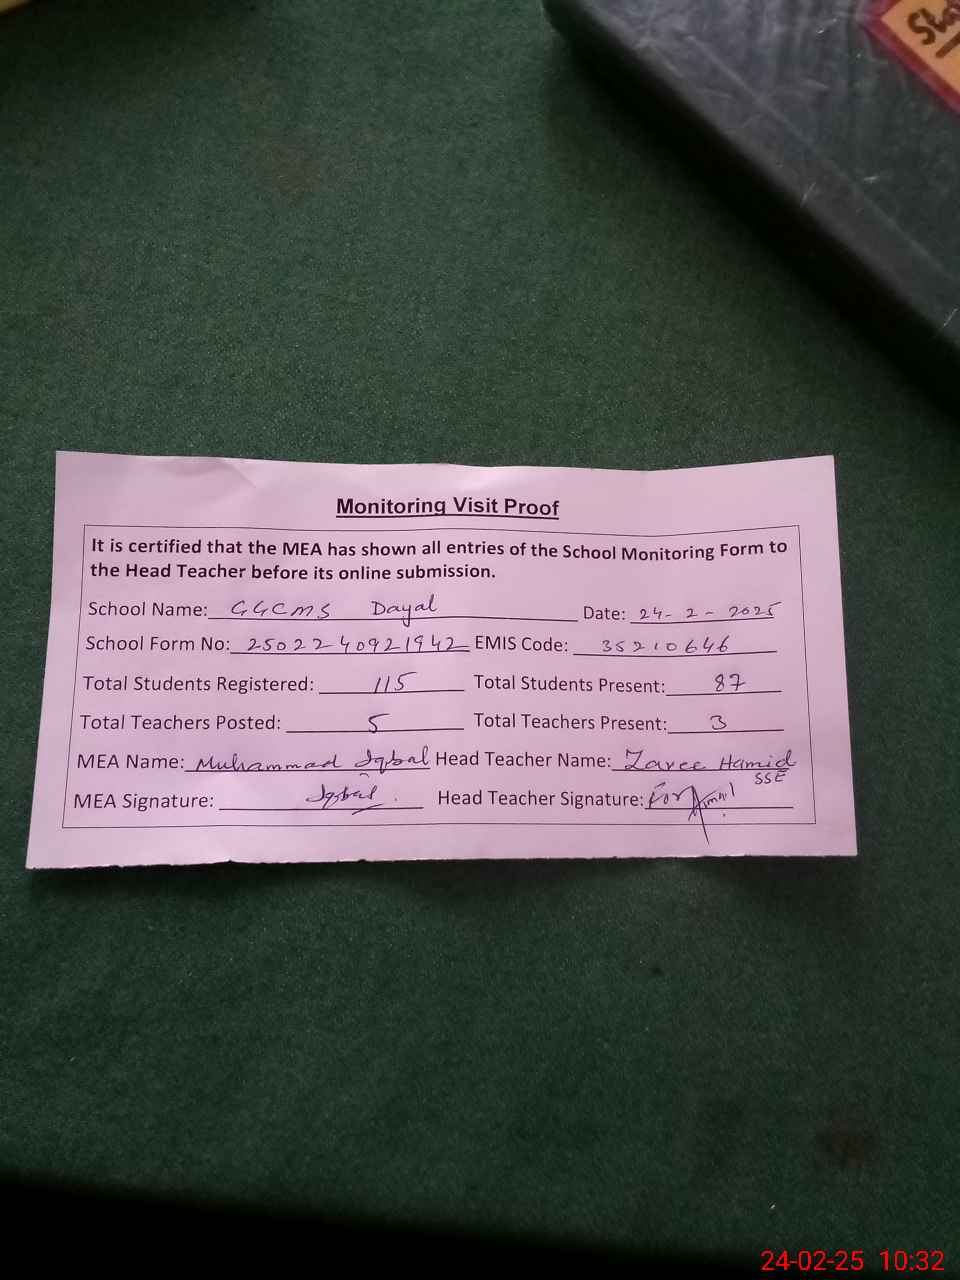 Monitoring Visit Proof
It is certified that the MEA has shown all entries of the School Monitoring Form to
the Head Teacher before its online submission.
School Name: GGCMS Dayal Date: 24-2-2025
School Form No: 2502240921942 EMIS Code: 35210646
Total Students Registered: 115 Total Students Present: 87
Total Teachers Posted: 5 Total Teachers Present: 3
MEA Name: Muhammad Iqbal Head Teacher Name: Hamid
SSE
MEA Signature: Iqbal. Head Teacher Signature: For
24-02-25 10:32